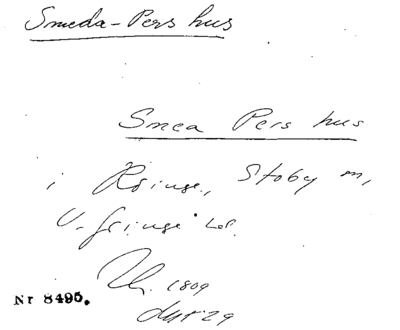 Smeda-Pers hus
Smea Pers hus
i Röinge, Stoby sn,
V. Göinge hd.
1809
Nr 8495.
29